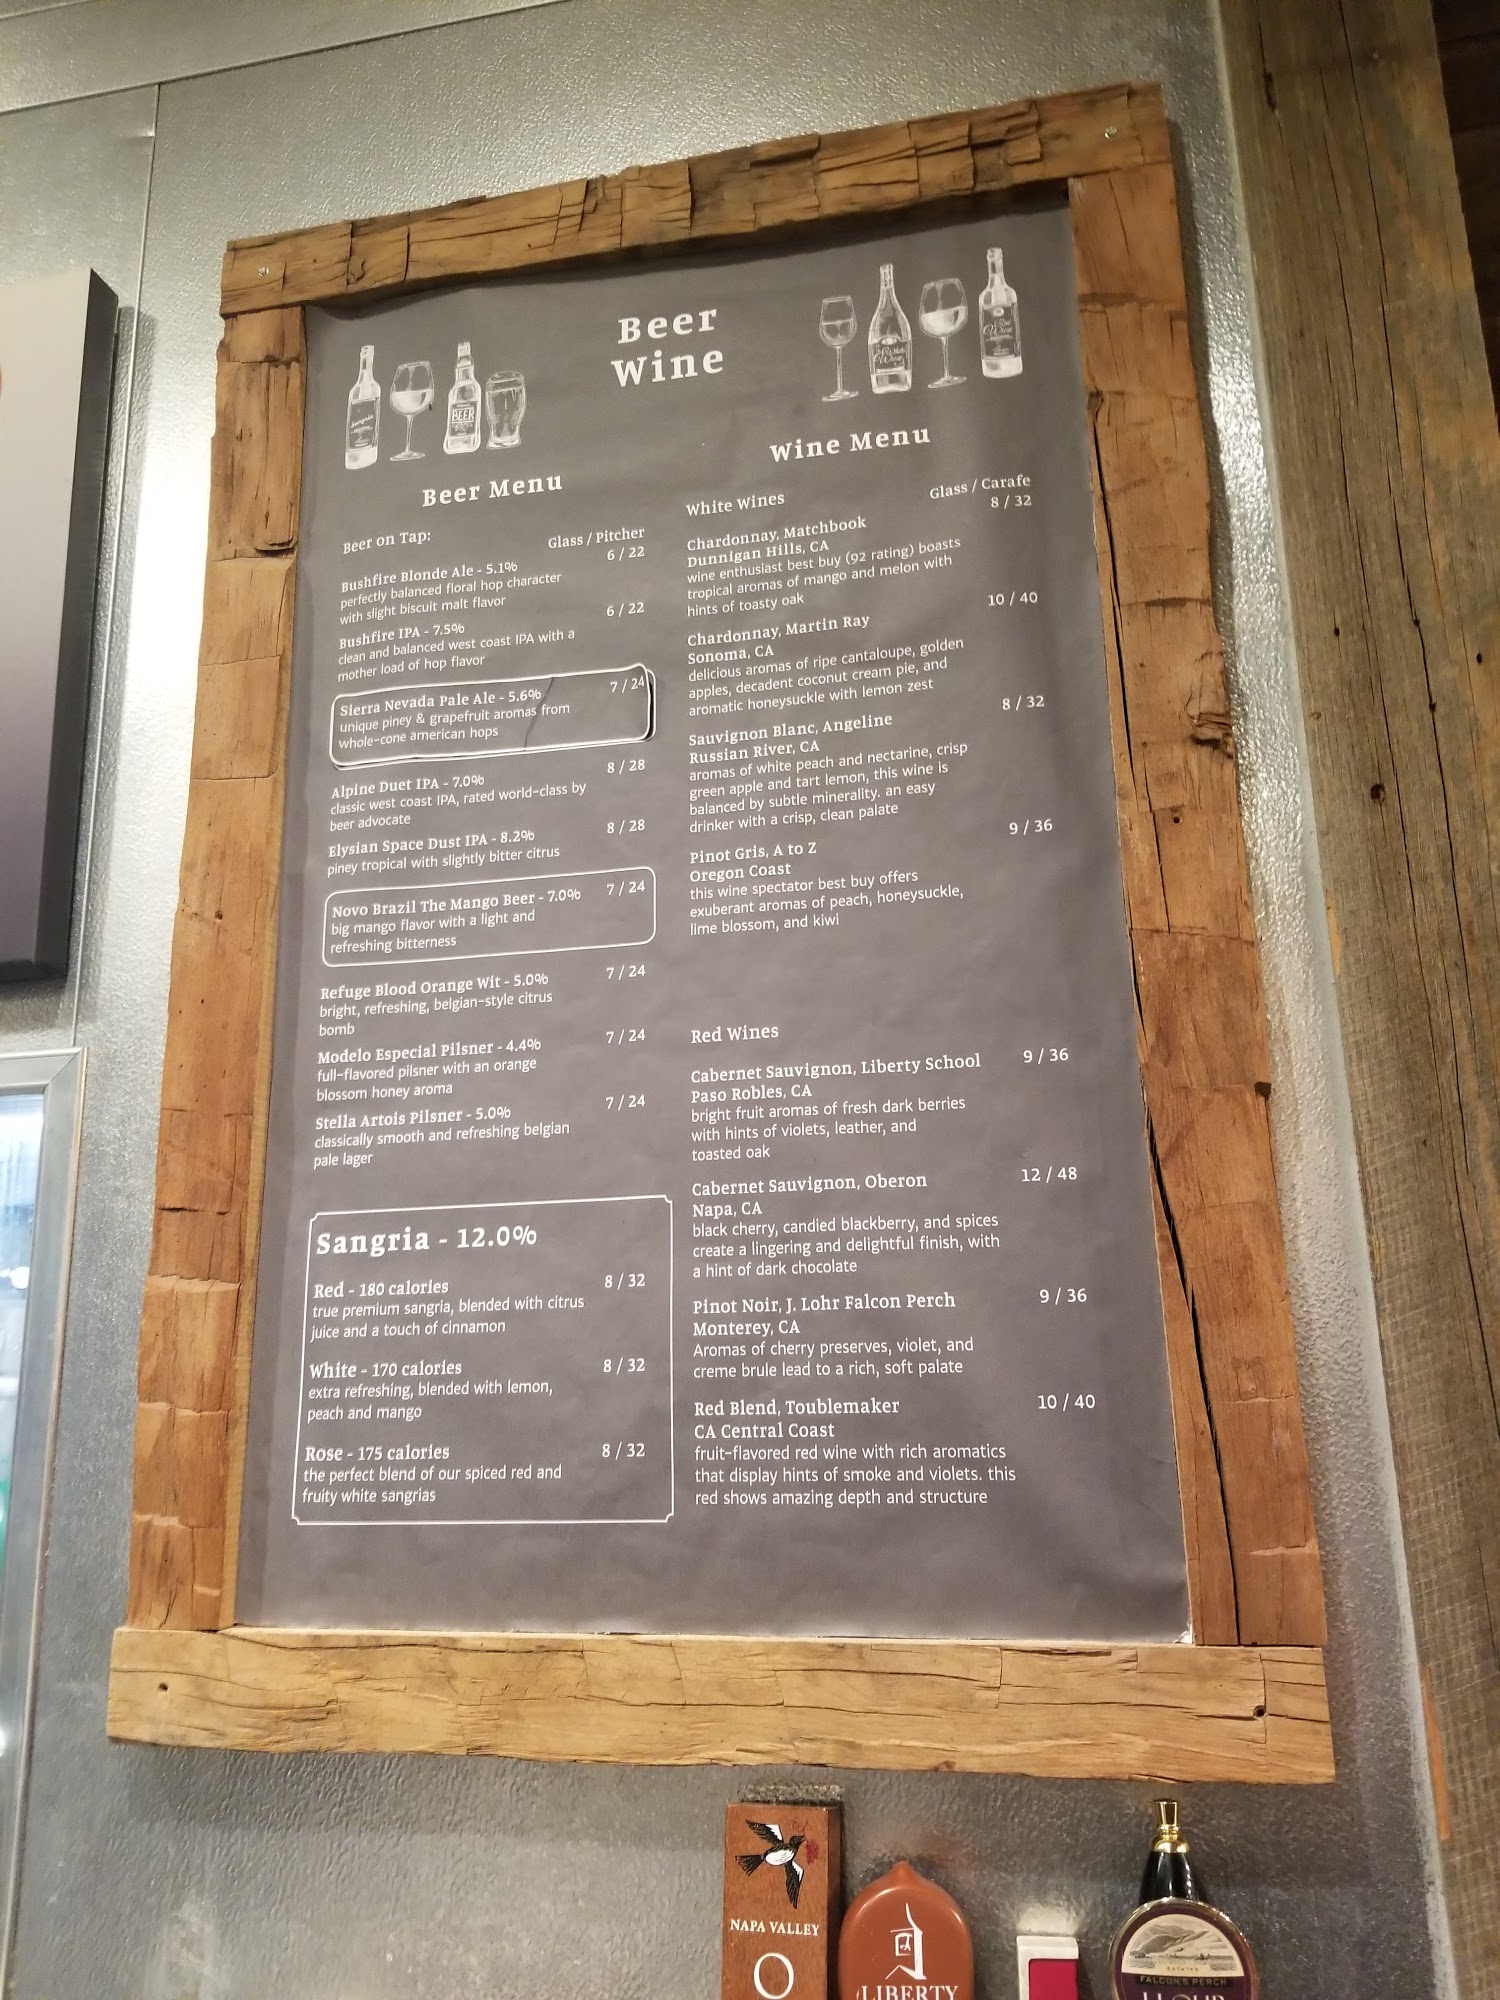 Beer
Wine
Beer Menu
Beer on Tap:
Glass / Pitcher
Bushfire Blonde Ale - 5.1% 6 / 22
perfectly balanced floral hop character
with slight biscuit malt flavor
Bushfire IPA - 7.5% 6 / 22
clean and balanced west coast IPA with a
mother load of hop flavor
Sierra Nevada Pale Ale - 5.6% 7 / 24
unique piney & grapefruit aromas from
whole-cone american hops
Alpine Duet IPA - 7.0% 8 / 28
classic west coast IPA, rated world-class by
beer advocate
Elysian Space Dust IPA - 8.2% 8 / 28
piney tropical with slightly bitter citrus
Novo Brazil The Mango Beer - 7.0% 7 / 24
big mango flavor with a light and
refreshing bitterness
Refuge Blood Orange Wit - 5.0% 7 / 24
bright, refreshing, belgian-style citrus
bomb
Modelo Especial Pilsner - 4.4% 7 / 24
full-flavored pilsner with an orange
blossom honey aroma
Stella Artois Pilsner - 5.0% 7 / 24
classically smooth and refreshing belgian
pale lager
Sangria - 12.0%
Red - 180 calories 8 / 32
true premium sangria, blended with citrus
juice and a touch of cinnamon
White - 170 calories 8 / 32
extra refreshing, blended with lemon,
peach and mango
Rose - 175 calories 8 / 32
the perfect blend of our spiced red and
fruity white sangrias
Wine Menu
White Wines
Glass / Carafe
Chardonnay, Matchbook 8 / 32
Dunnigan Hills, CA
wine enthusiast best buy (92 rating) boasts
tropical aromas of mango and melon with
hints of toasty oak
Chardonnay, Martin Ray 10 / 40
Sonoma, CA
delicious aromas of ripe cantaloupe, golden
apples, decadent coconut cream pie, and
aromatic honeysuckle with lemon zest
Sauvignon Blanc, Angeline 8 / 32
Russian River, CA
aromas of white peach and nectarine, crisp
green apple and tart lemon, this wine is
balanced by subtle minerality. an easy
drinker with a crisp, clean palate
Pinot Gris, A to Z 9 / 36
Oregon Coast
this wine spectator best buy offers
exuberant aromas of peach, honeysuckle,
lime blossom, and kiwi
Red Wines
Cabernet Sauvignon, Liberty School 9 / 36
Paso Robles, CA
bright fruit aromas of fresh dark berries
with hints of violets, leather, and
toasted oak
Cabernet Sauvignon, Oberon 12 / 48
Napa, CA
black cherry, candied blackberry, and spices
create a lingering and delightful finish, with
a hint of dark chocolate
Pinot Noir, J. Lohr Falcon Perch 9 / 36
Monterey, CA
Aromas of cherry preserves, violet, and
creme brule lead to a rich, soft palate
Red Blend, Toublemaker 10 / 40
CA Central Coast
fruit-flavored red wine with rich aromatics
that display hints of smoke and violets. this
red shows amazing depth and structure
Sangria
BEER
White
Wine
NAPA VALLEY
O
LIBERTY
ESTATES
FALCON'S PERCH